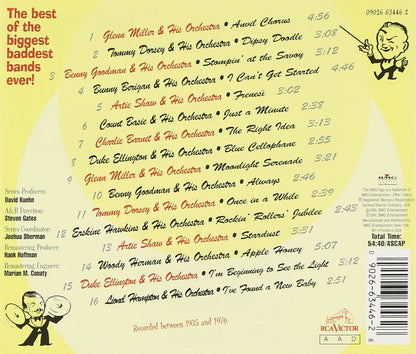 The best
of the
biggest
baddest
bands
ever!
09026 63446 2
1 Glenn Miller & His Orchestra • Anvil Chorus 4:56
2 Tommy Dorsey & His Orchestra • Dipsy Doodle
3 Benny Goodman & His Orchestra • Stompin' at the Savoy
4 Bunny Berigan & His Orchestra • I Can't Get Started
5 Artie Shaw & His Orchestra • Frenesi 3:02
6 Count Basie & His Orchestra • Just a Minute 2:38
7 Charlie Barnet & His Orchestra • The Right Idea
8 Duke Ellington & His Orchestra • Blue Cellophane
9 Glenn Miller & His Orchestra • Moonlight Serenade
10 Benny Goodman & His Orchestra • Always
11 Tommy Dorsey & His Orchestra • Once in a While
12 Erskine Hawkins & His Orchestra • Rockin' Rollers' Jubilee
13 Artie Shaw & His Orchestra • Stardust
14 Woody Herman & His Orchestra • Apple Honey
15 Duke Ellington & His Orchestra • I'm Beginning to See the Light
16 Lionel Hampton & His Orchestra • I've Found a New Baby
Recorded between 1935 and 1976
Series Producers:
David Kuehn
A&R Direction:
Steven Gates
Series Coordinator:
Joshua Sherman
Remastering Producer:
Hank Hoffman
Remastering Engineer:
Marian M. Conaty
BMG
Total Time:
54:40/ASCAP
RCA VICTOR
A A D
0 9026-63446-2 8